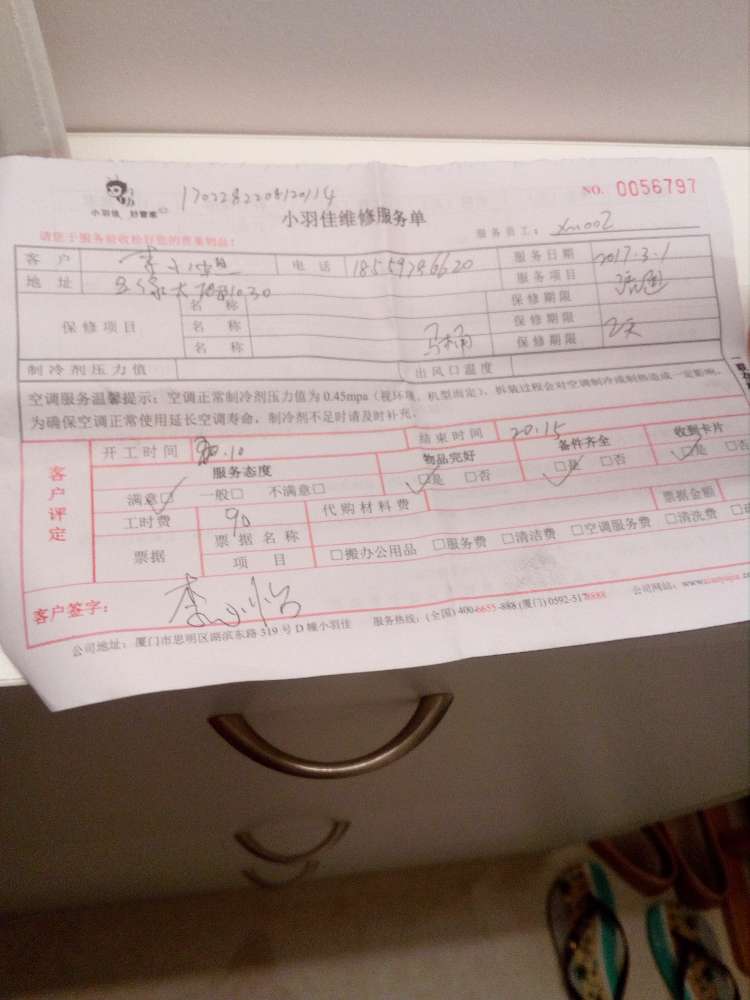 小羽佳 好管家
170228220812014
小羽佳维修服务单
NO. 0056797
请您于服务前收检好您的贵重物品！
服务员工：xm002
客户 李小姐 电话 18559786620 服务日期 2017.3.1
地址 1030 服务项目
保修项目 名称 保修期限
名称 保修期限
名称 马桶 保修期限
制冷剂压力值 出风口温度
空调服务温馨提示：空调正常制冷剂压力值为 0.45mpa（视环境、机型而定），拆装过程会对空调制冷或制热造成一定影响。
为确保空调正常使用延长空调寿命，制冷剂不足时请及时补充。
客户评定
开工时间 20.10 结束时间 20.15
服务态度 物品完好 备件齐全 收到卡片
满意□ 一般□ 不满意□ □是 □否 □是 □否 □是 □否
工时费 90 代购材料费
票据 票据名称 票据金额
项目 □搬办公用品 □服务费 □清洁费 □空调服务费 □清洗费
客户签字：李小怡
公司地址：厦门市思明区湖滨东路 319 号 D 幢小羽佳 服务热线：(全国) 400-6655-888 (厦门) 0592-5178888 公司网站：